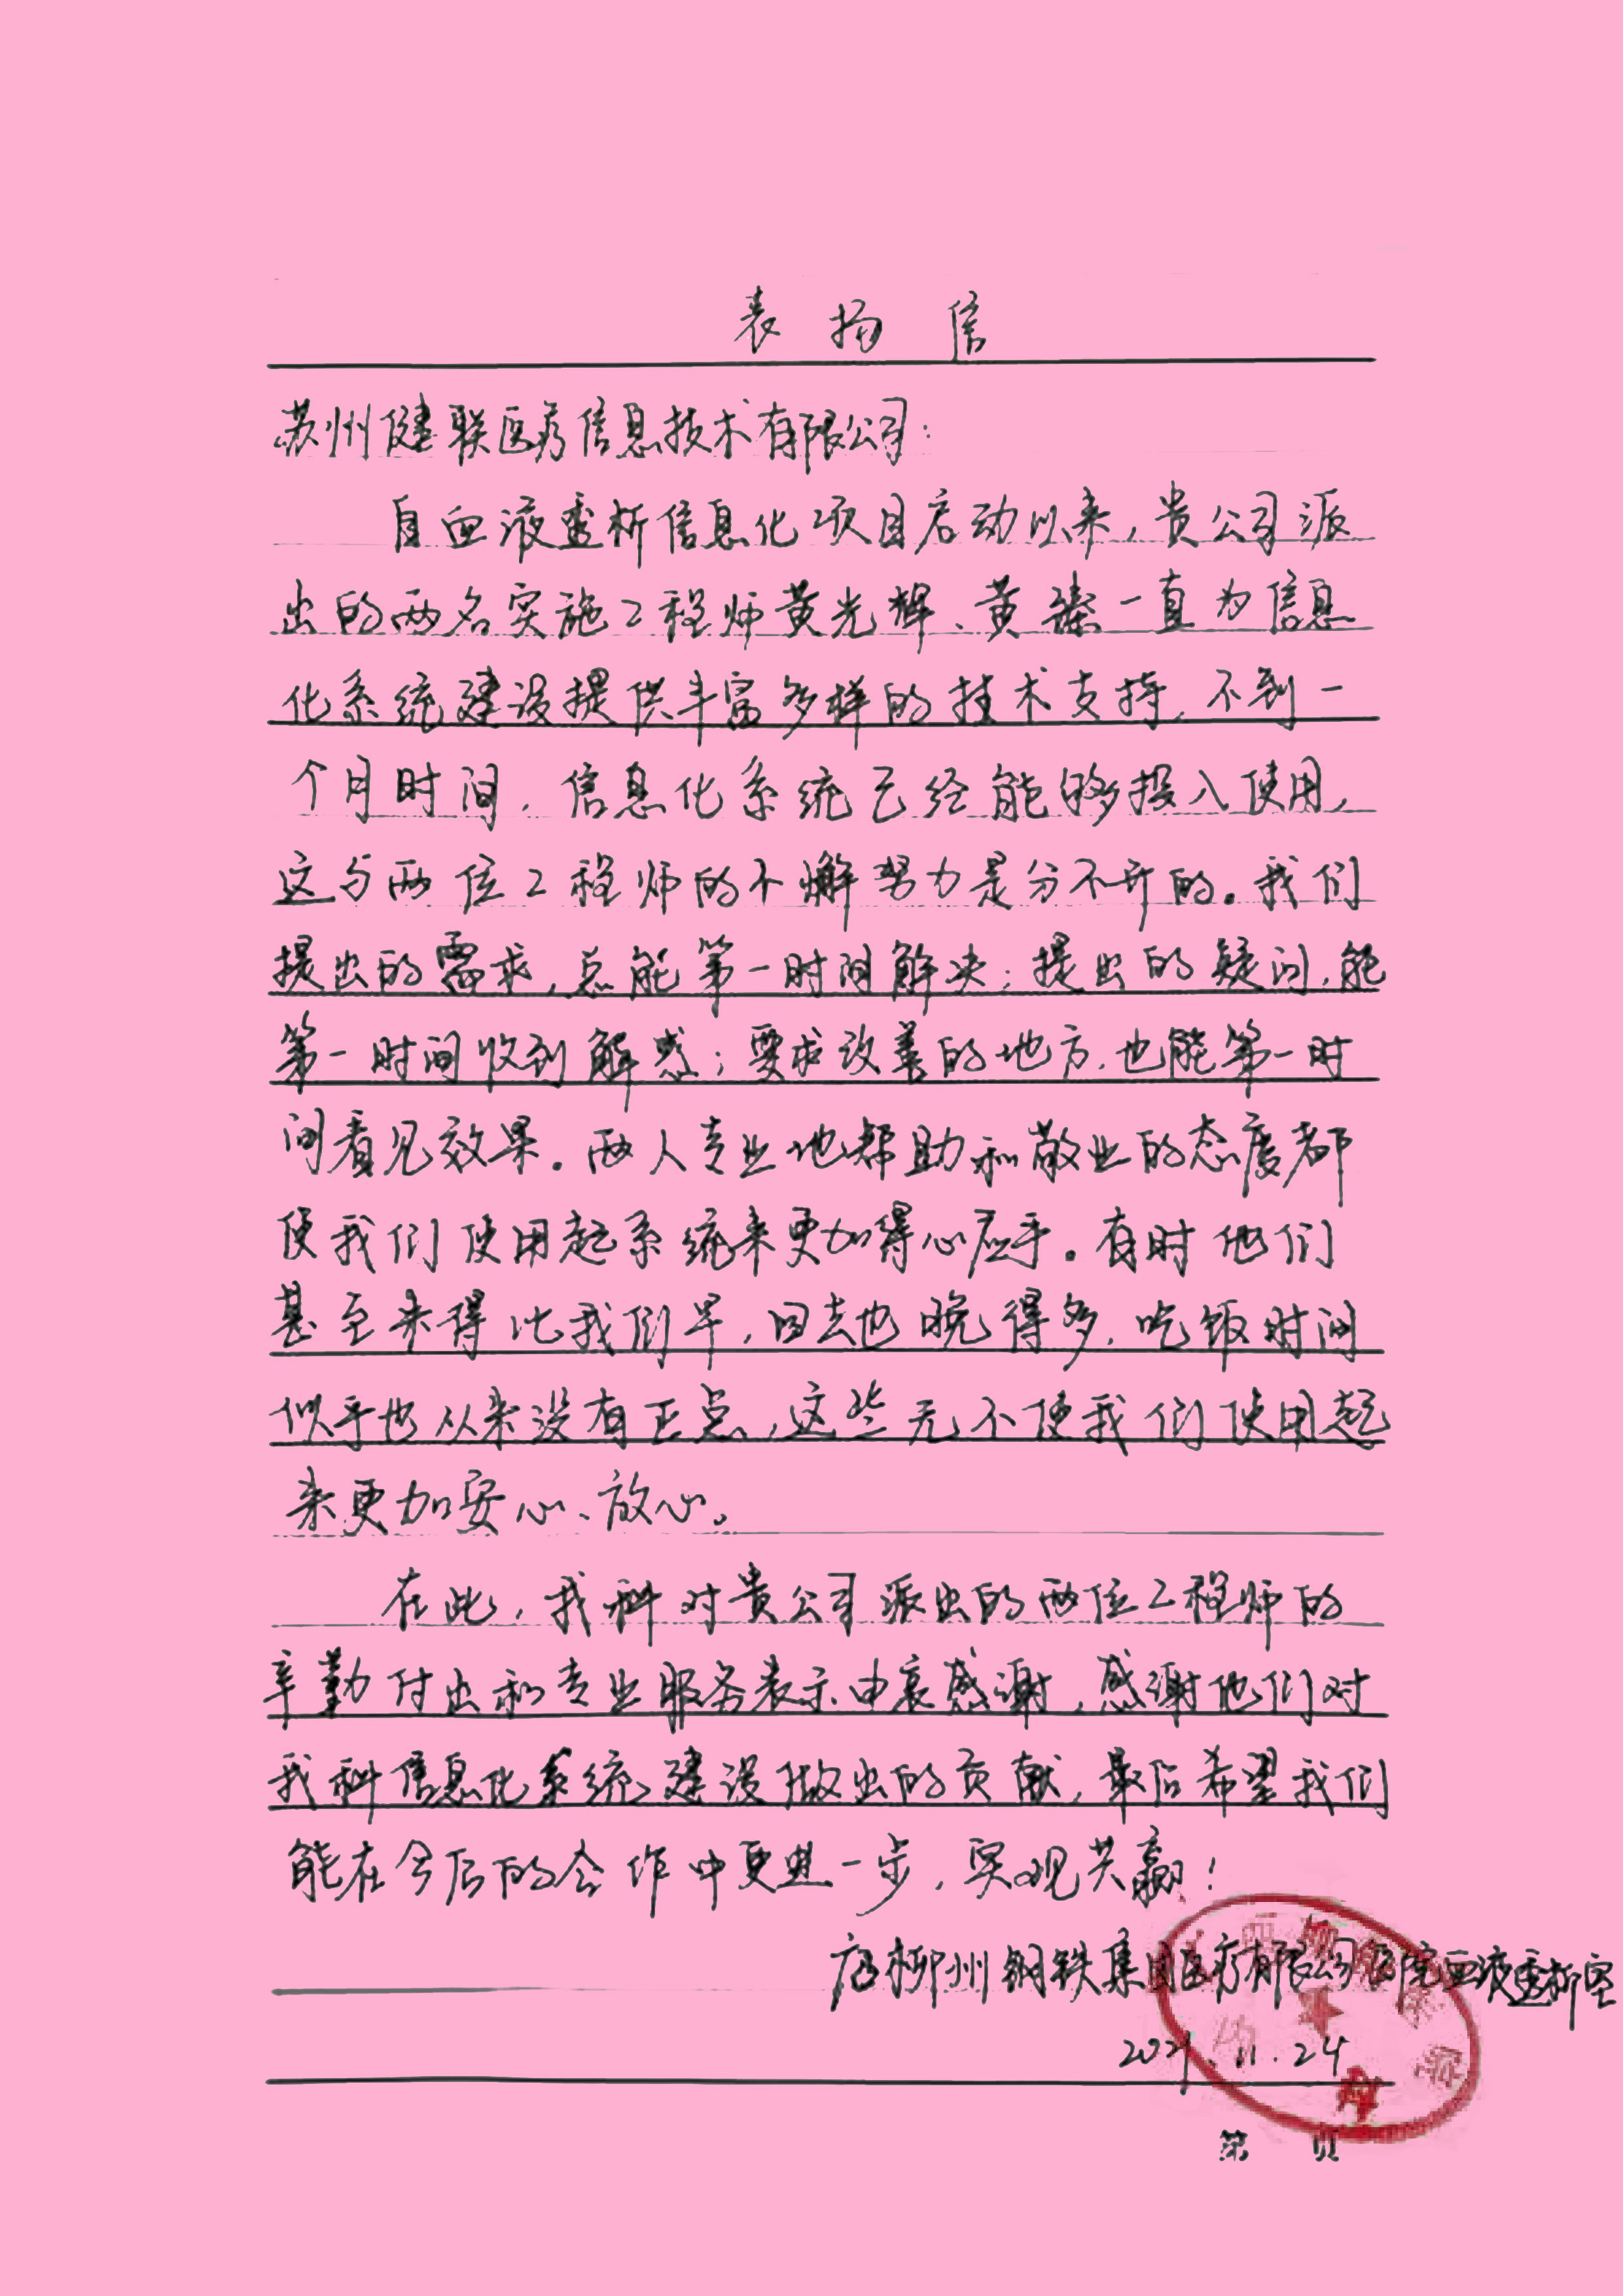 表扬信
苏州健联医疗信息技术有限公司:
自血液透析信息化项目启动以来，贵公司派
出的两名实施工程师黄光辉、黄臻一直为信息
化系统建设提供丰富多样的技术支持，不到一
个月时间，信息化系统已经能够投入使用，
这与两位工程师的不懈努力是分不开的。我们
提出的需求，总能第一时间解决；提出的疑问，能
第一时间收到解惑；要求改善的地方，也能第一时
间看见效果。两人专业地帮助和敬业的态度都
使我们使用起系统来更加得心应手。有时他们
甚至来得比我们早，回去也晚得多，吃饭时间
似乎也从来没有正点，这些无不使我们使用起
来更加安心、放心。
在此，我科对贵公司派出的两位工程师的
辛勤付出和专业服务表示由衷感谢，感谢他们对
我科信息化系统建设做出的贡献，最后希望我们
能在今后的合作中更进一步，实现共赢！
柳州钢铁集团医疗有限公司医院血液透析室
2021.11.24
第 页